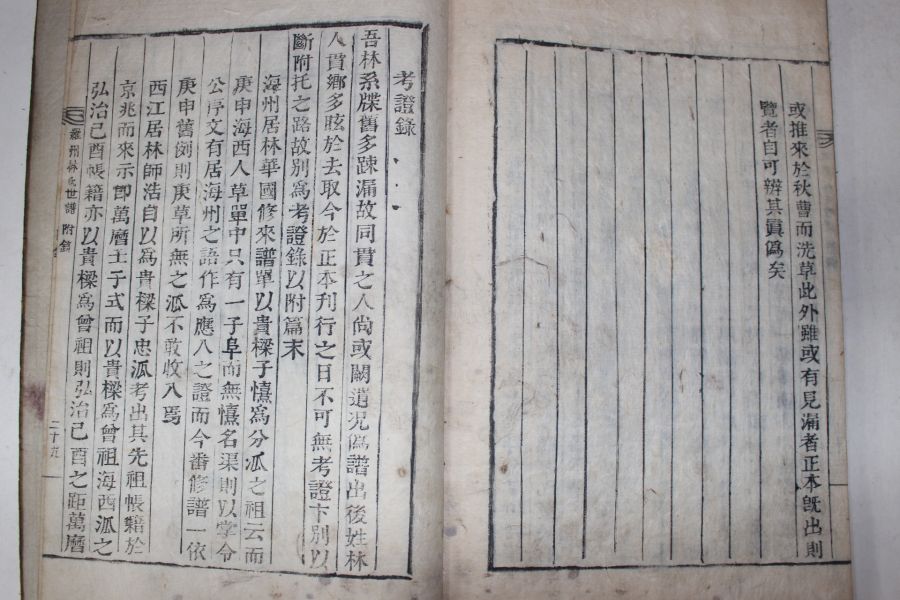 或推來於秋曹而洗草此外雖或有見漏者正本旣出則
覽者自可辨其眞僞矣
考證錄
吾林系牒舊多疎漏故同貫之人尙或闕遺况僞譜出後姓林
人貫鄉多眩於去取今於正本刊行之日不可無考證卞別以
斷附托之路故別爲考證錄以附篇末
海州居林華國修來譜單以貴樑子憘爲分派之祖云而
庚申海西人草單中只有一子阜而無憘名渠則以掌令
公序文有居海州之語作爲應入之證而今番修譜一依
庚申舊例則庚草所無之派不敢收入焉
西江居林師浩自以爲貴樑子忠派考出其先祖帳籍於
京兆而來示卽萬曆壬子式而以貴樑爲曾祖海西派之
弘治己酉帳籍亦以貴樑爲曾祖則弘治己酉之距萬曆
羅州林氏世譜 附錄 二十五